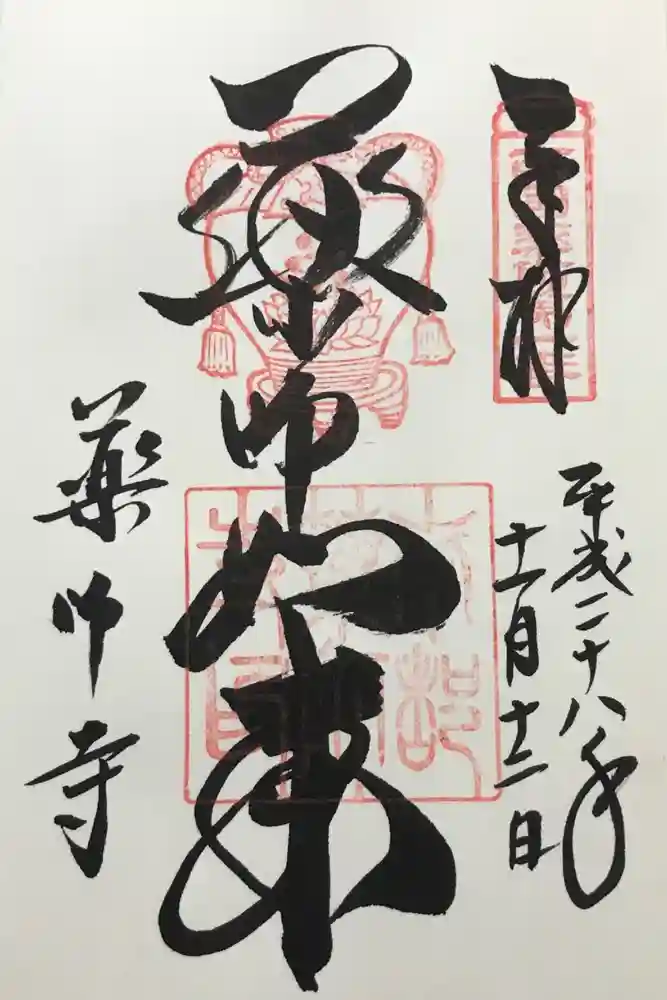 奉拝
平成二十八年
十一月十三日
薬師如来
薬师寺